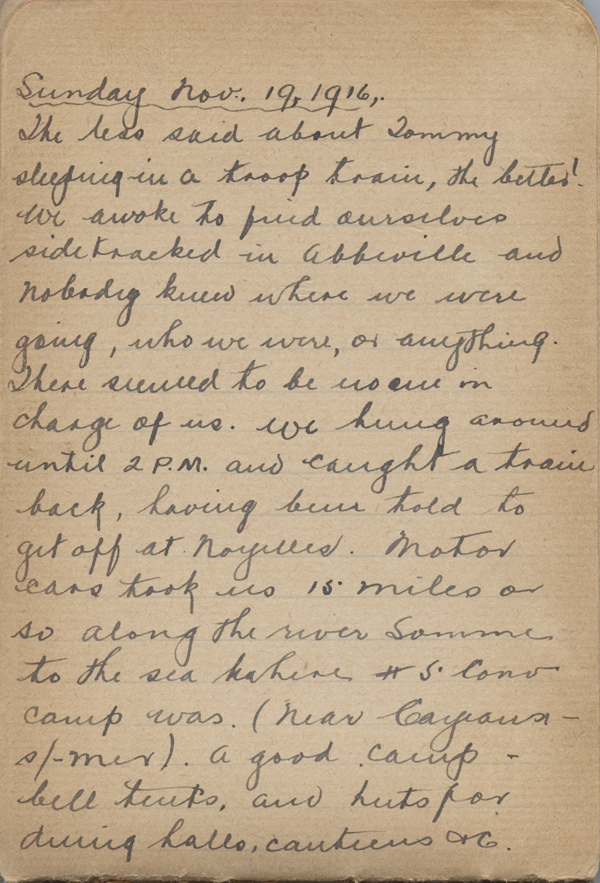 Sunday Nov. 19, 1916,.
The less said about Tommy
sleeping in a troop train, the better!
We awoke to find ourselves
sidetracked in Abbeville and
nobody knew where we were
going, who we were, or anything.
There seemed to be no one in
charge of us. We hung around
until 2 P.M. and caught a train
back, having been told to
get off at Noyelles. Motor
cars took us 15 miles or
so along the river Somme
to the sea where # 5 Conv
camp was. (Near Cayeaux-
s/-mer). A good camp -
bell tents, and huts for
dining halls, canteens &c.